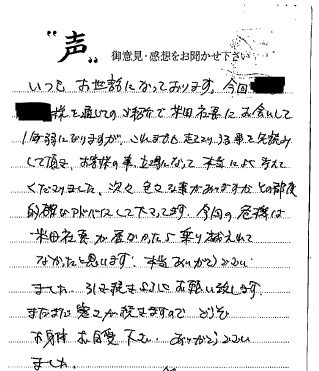 "声" 御意見・感想をお聞かせ下さい
いつも お世話になっております。今回
様を通じてのご紹介で 米田社長にお会いして
1年弱になりますが、これまでも 起こりうる事を先読み
して頂き、お客様の事、立場になって 本当によく考えて
くださりました。次々 色々な事がありますが その都度
的確なアドバイスして下さってます。今回の危機は
米田社長が居なかったら乗り越えれて
なかったと思います。本当ありがとうござい
ました。引き続きよろしくお願い致します。
まだまだ寒さが続きますので どうぞ
お身体 お自愛 下さい ありがとうござい
ました。